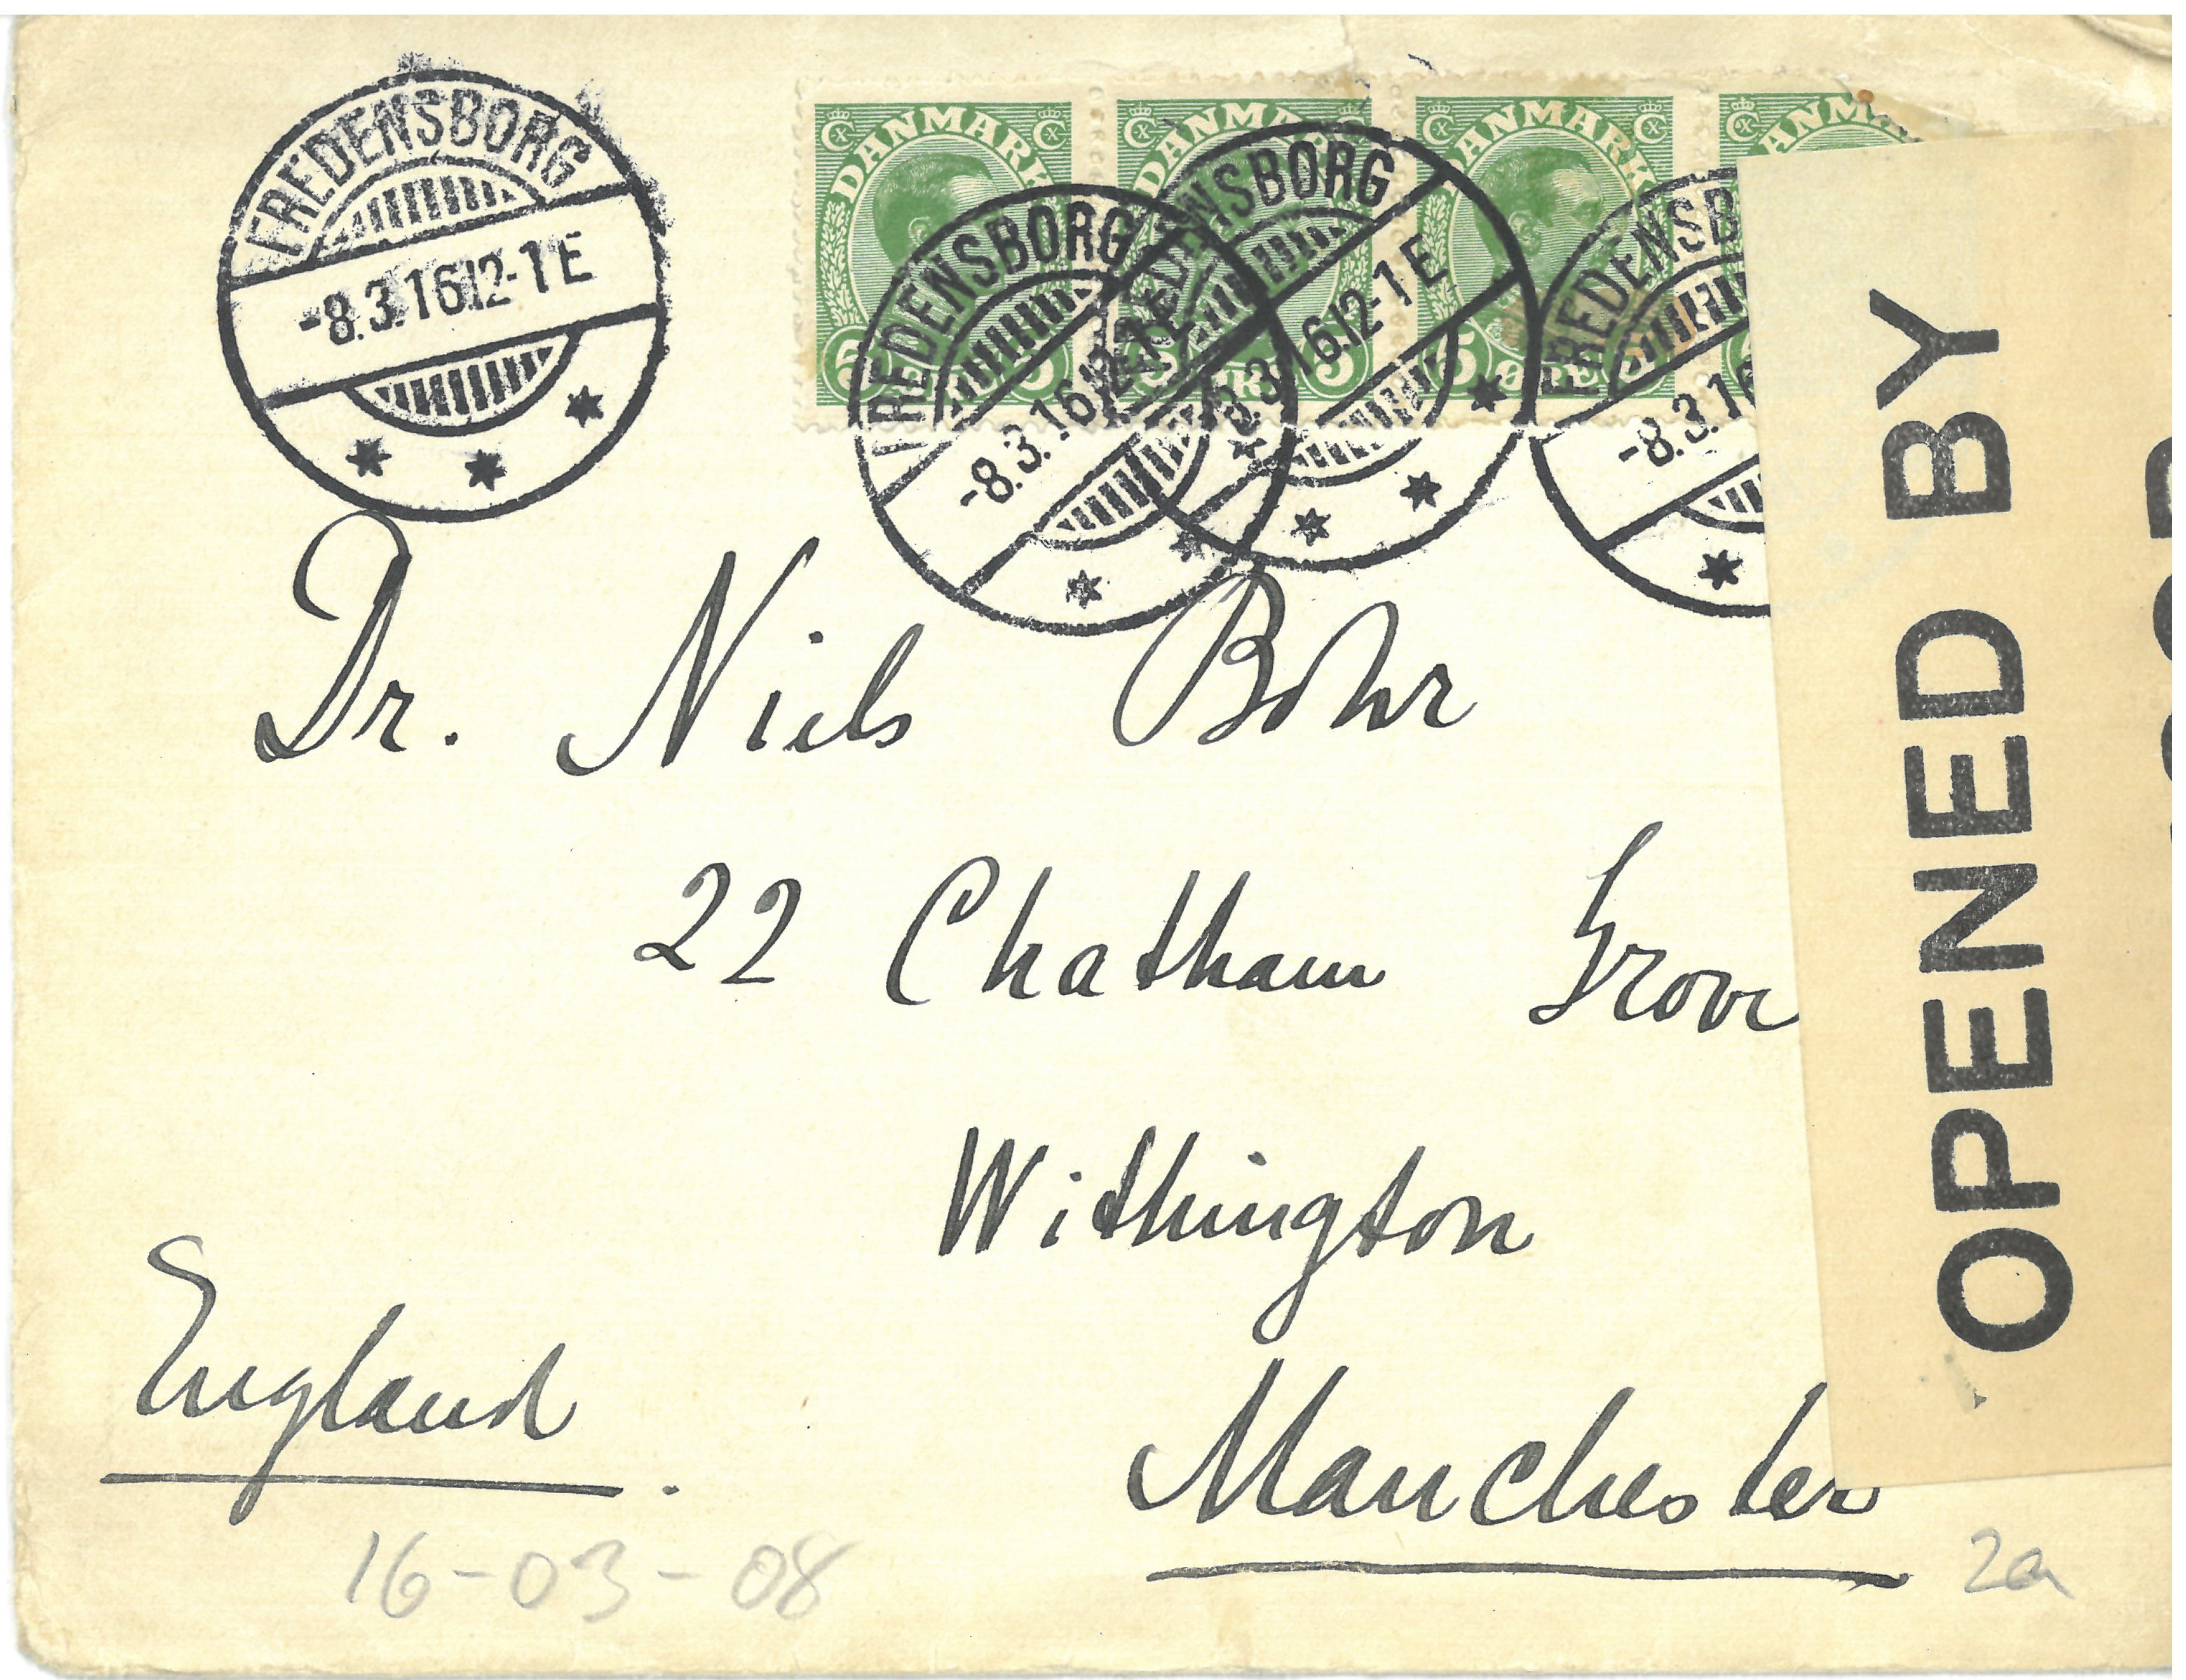 FREDENSBORG
-8.3.16 12-1 E
DANMARK DANMARK DANMARK DANMA
5 5 5 5 ØRE 5
FREDENSBORG
-8.3.16 12-1 E
FREDENSBORG
-8.3.16 12-1 E
FREDENSB
-8.3.16
OPENED BY
Dr. Niels Bohr
22 Chatham Grove
Withington
Manchester
England.
16-03-08
2a